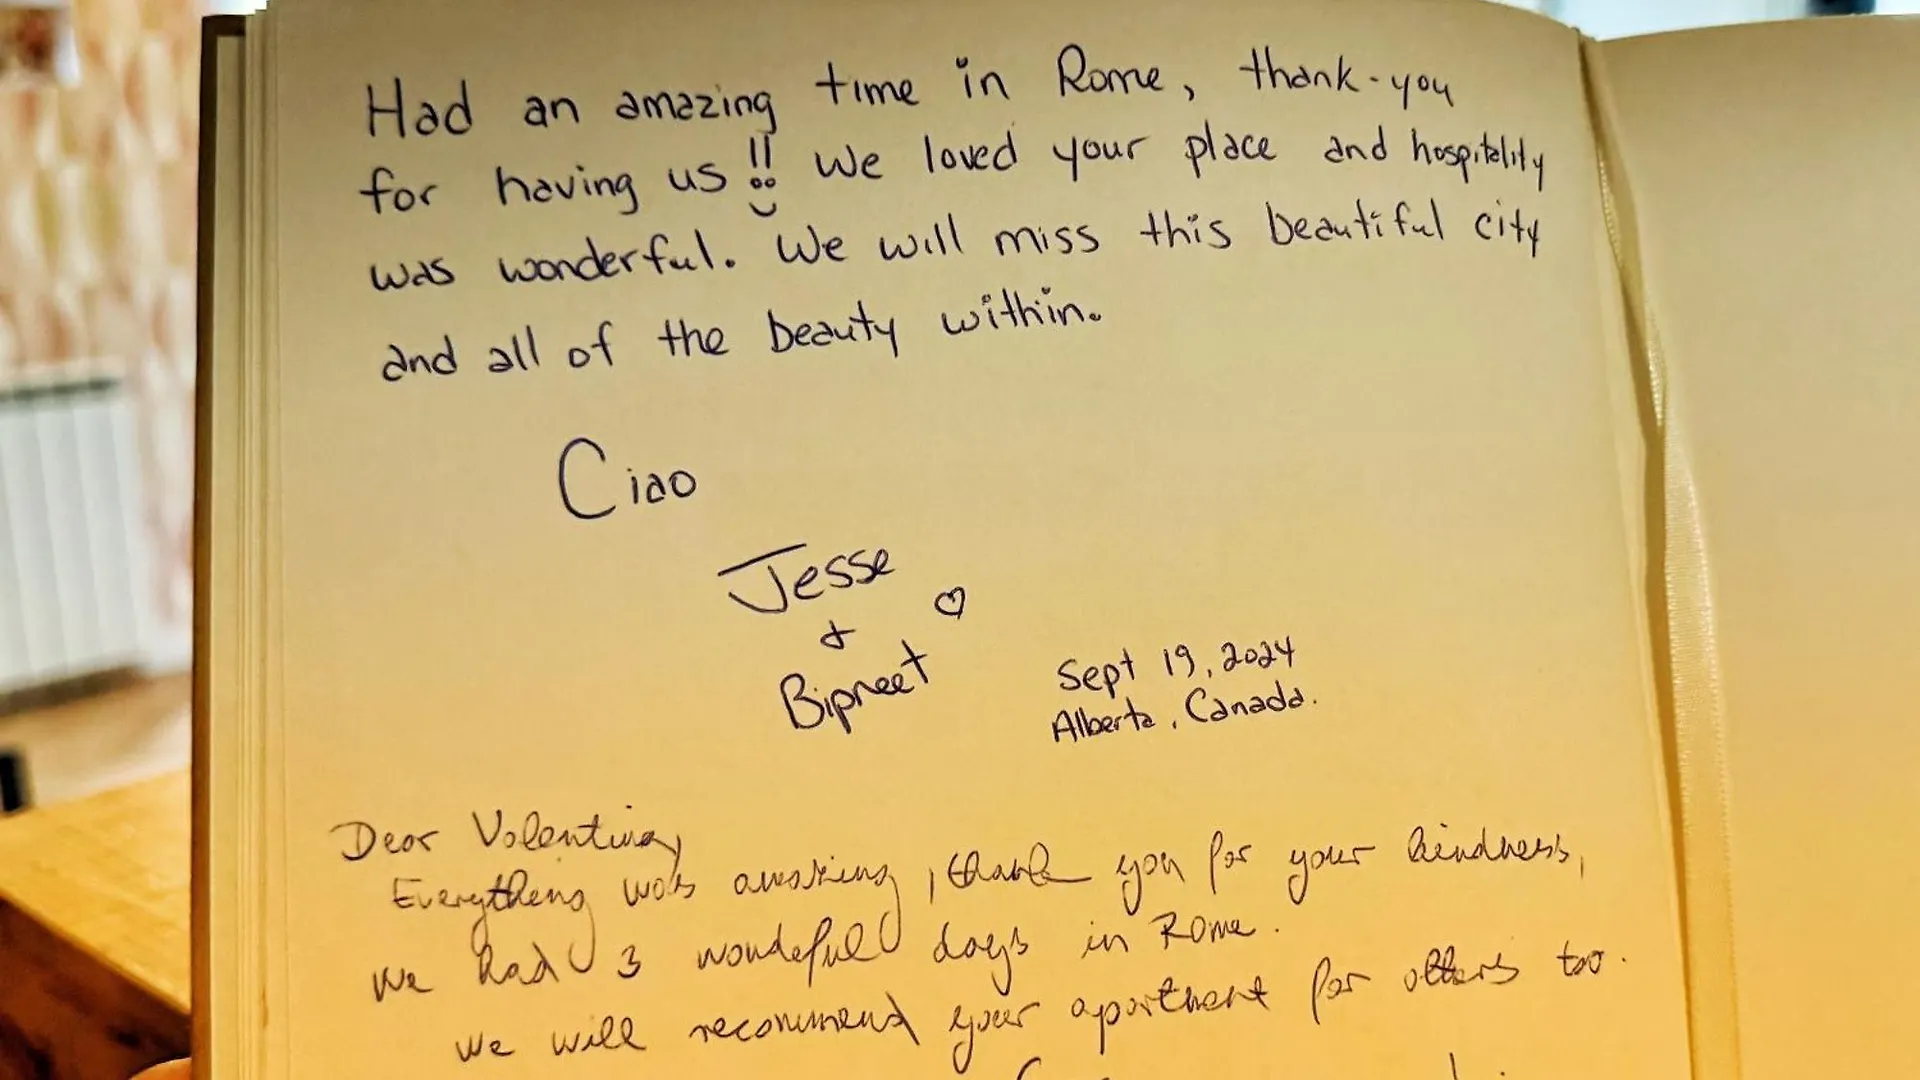 Had an amazing time in Rome, thank-you
for having us!! We loved your place and hospitality
was wonderful. We will miss this beautiful city
and all of the beauty within.
Ciao
Jesse
&
Bipneet
Sept 19, 2024
Alberta, Canada.
Dear Valentina,
Everything was amazing, thank you for your kindness,
we had 3 wondeful days in Rome.
We will recommend your apartment for others too.